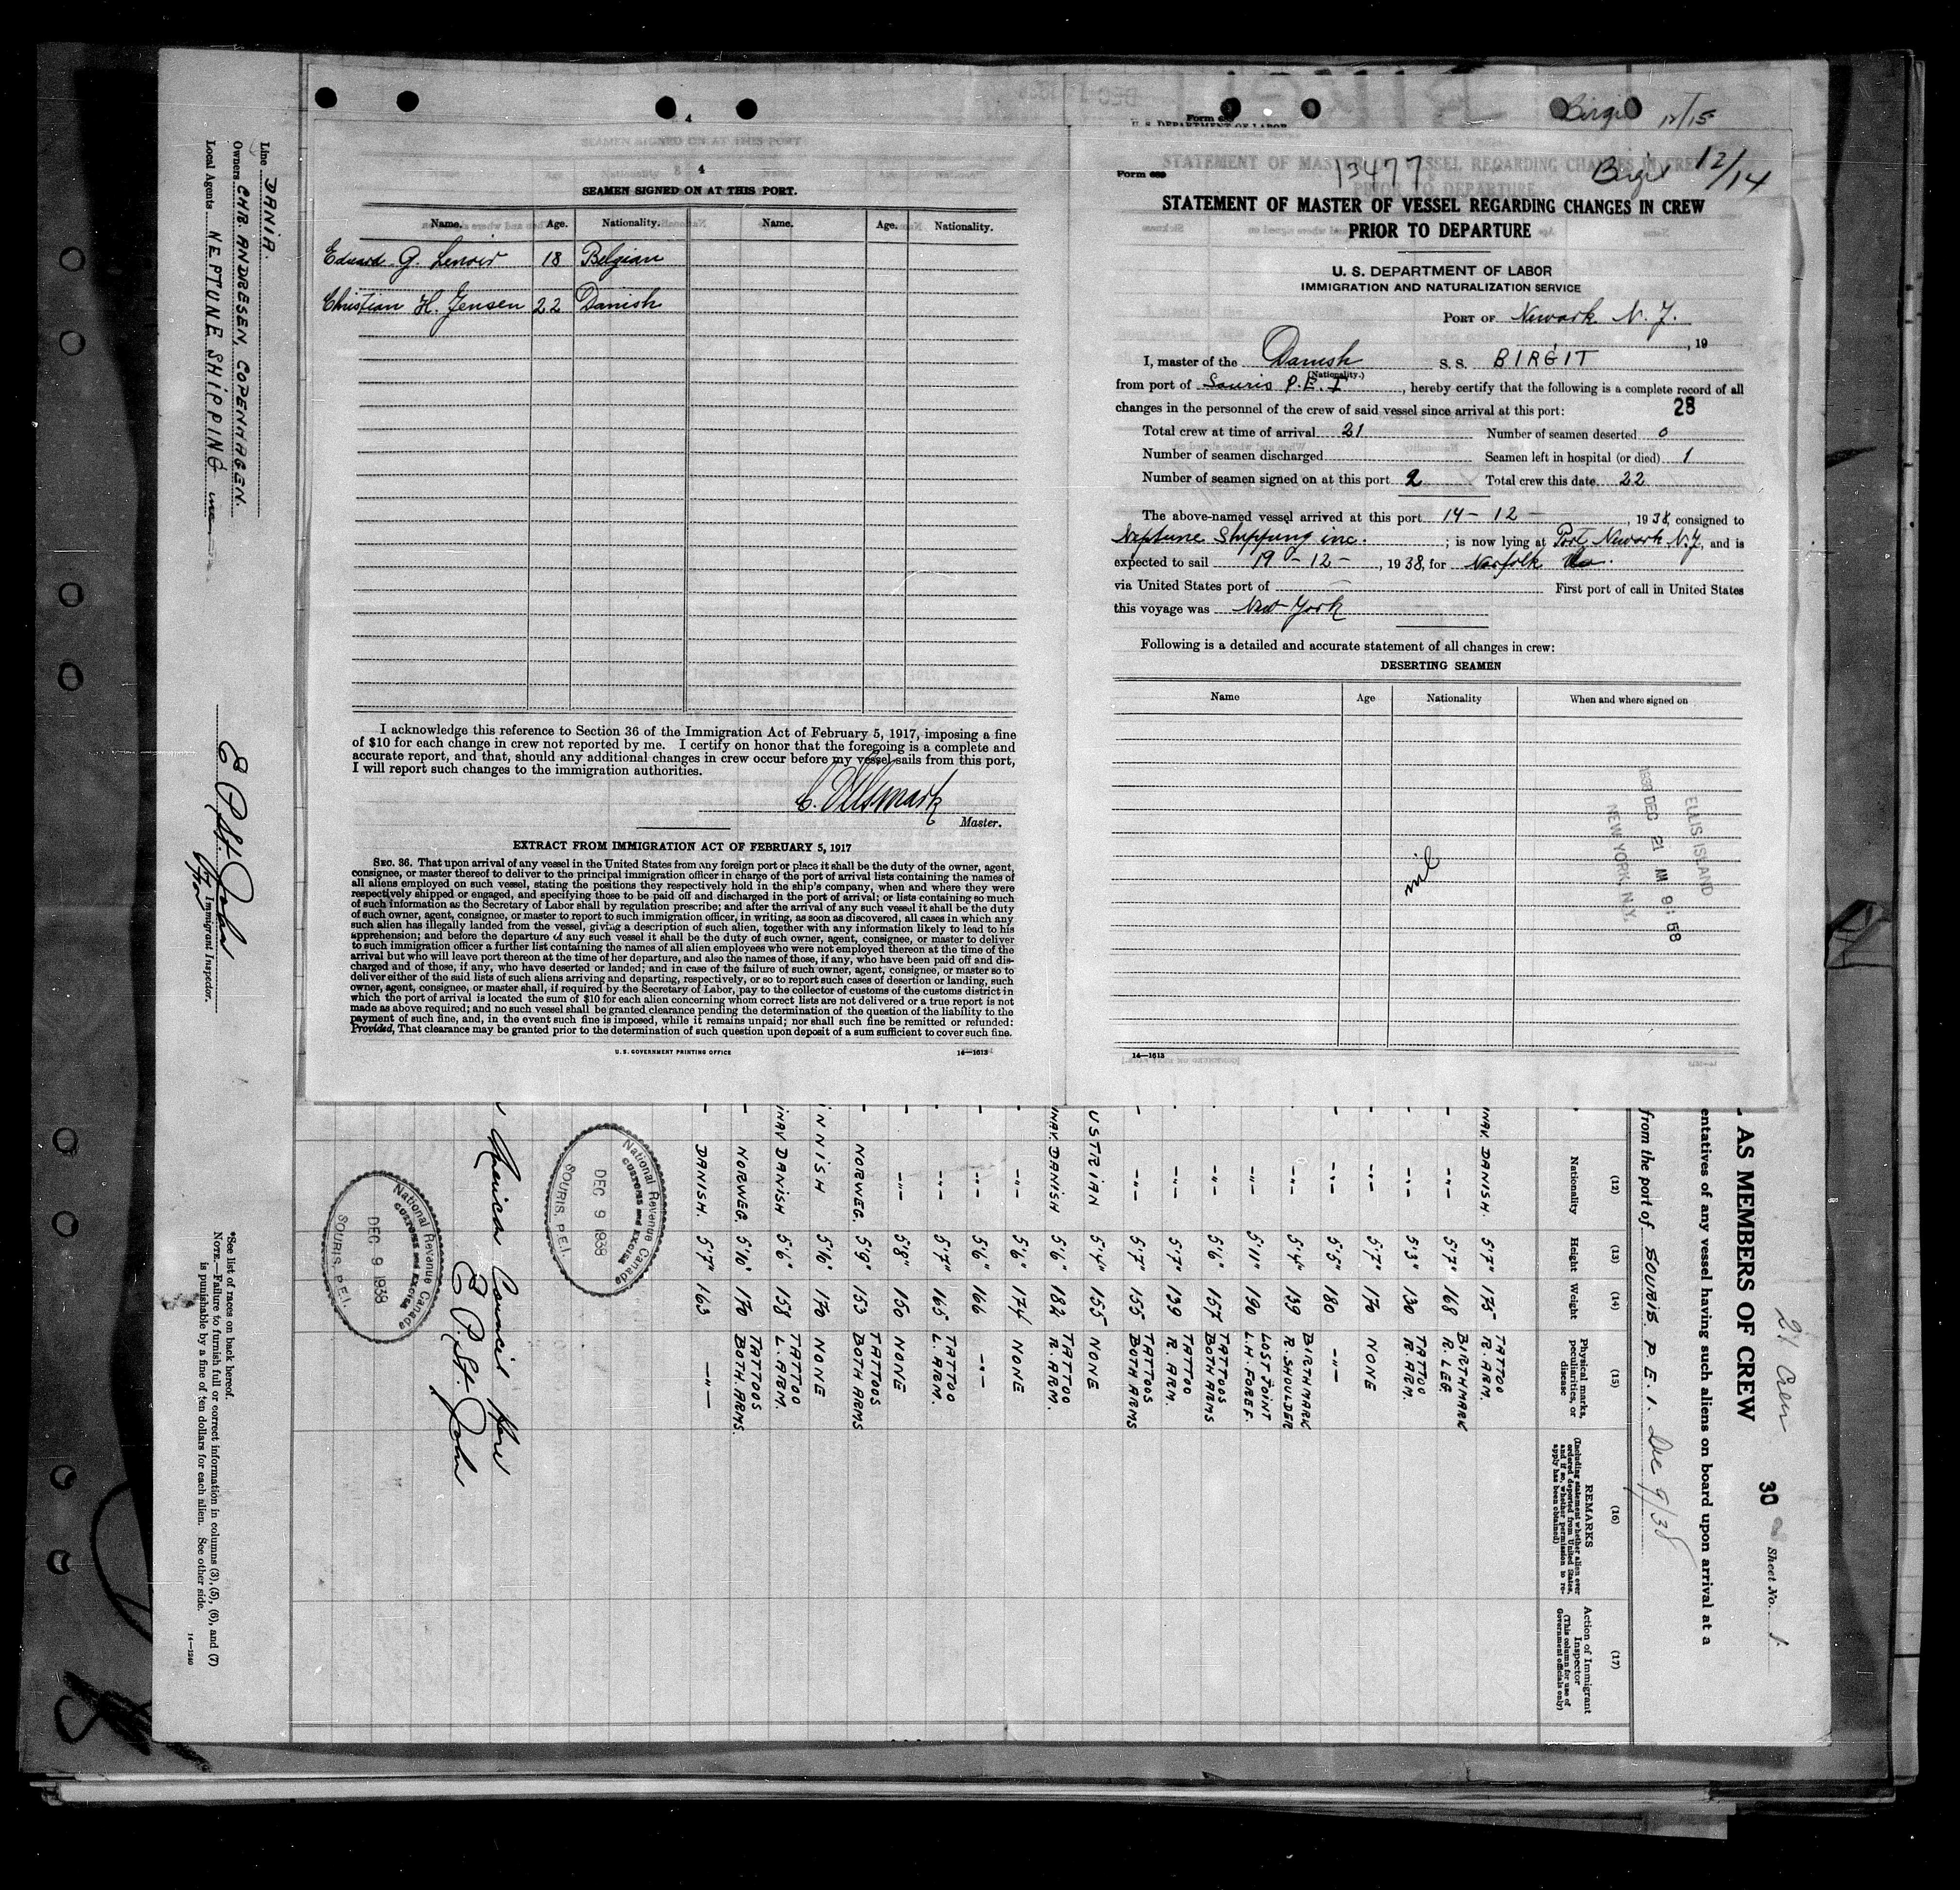 Birgit 12/15
4
4
SEAMEN SIGNED ON AT THIS PORT.
Name. Age. Nationality. Name. Age. Nationality.
Eduard G. Lenoir 18 Belgian
Christian H. Jensen 22 Danish
I acknowledge this reference to Section 36 of the Immigration Act of February 5, 1917, imposing a fine
of $10 for each change in crew not reported by me. I certify on honor that the foregoing is a complete and
accurate report, and that, should any additional changes in crew occur before my vessel sails from this port,
I will report such changes to the immigration authorities.
Master.
EXTRACT FROM IMMIGRATION ACT OF FEBRUARY 5, 1917
SEC. 36. That upon arrival of any vessel in the United States from any foreign port or place it shall be the duty of the owner, agent,
consignee, or master thereof to deliver to the principal immigration officer in charge of the port of arrival lists containing the names of
all aliens employed on such vessel, stating the positions they respectively hold in the ship's company, when and where they were
respectively shipped or engaged, and specifying those to be paid off and discharged in the port of arrival; or lists containing so much
of such information as the Secretary of Labor shall by regulation prescribe; and after the arrival of any such vessel it shall be the duty
of such owner, agent, consignee, or master to report to such immigration officer, in writing, as soon as discovered, all cases in which any
such alien has illegally landed from the vessel, giving a description of such alien, together with any information likely to lead to his
apprehension; and before the departure of any such vessel it shall be the duty of such owner, agent, consignee, or master to deliver
to such immigration officer a further list containing the names of all alien employees who were not employed thereon at the time of the
arrival but who will leave port thereon at the time of her departure, and also the names of those, if any, who have been paid off and dis-
charged and of those, if any, who have deserted or landed; and in case of the failure of such owner, agent, consignee, or master so to
deliver either of the said lists of such aliens arriving and departing, respectively, or so to report such cases of desertion or landing, such
owner, agent, consignee, or master shall, if required by the Secretary of Labor, pay to the collector of customs of the customs district in
which the port of arrival is located the sum of $10 for each alien concerning whom correct lists are not delivered or a true report is not
made as above required; and no such vessel shall be granted clearance pending the determination of the question of the liability to the
payment of such fine, and, in the event such fine is imposed, while it remains unpaid; nor shall such fine be remitted or refunded:
Provided, That clearance may be granted prior to the determination of such question upon deposit of a sum sufficient to cover such fine.
U. S. GOVERNMENT PRINTING OFFICE 14—1613
Form 689 13477 Birgit 12/14
STATEMENT OF MASTER OF VESSEL REGARDING CHANGES IN CREW
PRIOR TO DEPARTURE
U. S. DEPARTMENT OF LABOR
IMMIGRATION AND NATURALIZATION SERVICE
PORT OF Newark N. J.
, 19
I, master of the Danish S. S. BIRGIT
(Nationality.)
from port of Souris P.E.I., hereby certify that the following is a complete record of all
changes in the personnel of the crew of said vessel since arrival at this port: 28
Total crew at time of arrival 21 Number of seamen deserted 0
Number of seamen discharged Seamen left in hospital (or died) 1
Number of seamen signed on at this port 2 Total crew this date 22
The above-named vessel arrived at this port 14-12-, 1938, consigned to
Neptune Shipping inc. ; is now lying at Port Newark N.J, and is
expected to sail 19-12-, 1938, for Norfolk Va.
via United States port of — First port of call in United States
this voyage was New York
Following is a detailed and accurate statement of all changes in crew:
DESERTING SEAMEN
Name Age Nationality When and where signed on
nil
ELLIS ISLAND
1938 DEC 21 AM 9:58
NEW YORK, N.Y.
14—1613
21 Crew 30 Sheet No. 1
AS MEMBERS OF CREW
entatives of any vessel having such aliens on board upon arrival at a
from the port of SOURIS. P. E. I. Dec 9/38
(12) (13) (14) (15) (16) (17)
Nationality Height Weight Physical marks, peculiarities, or disease
REMARKS
(Including statement whether alien ever
ordered deported from United States,
and if so, whether permission to re-
apply has been obtained)
Action of Immigrant
Inspector
(This column for use of
Government officials only)
NAV. DANISH. 5'7" 175 TATTOO R. ARM.
-"- 5'7" 168 BIRTHMARK R. LEG.
-"- 5'3" 130 TATTOO R. ARM.
-"- 5'7" 170 NONE
-"- 5'5" 180 -"-
-"- 5'4" 139 BIRTHMARK R. SHOULDER
-"- 5'11" 190 LOST JOINT L.H. FOREF.
-"- 5'6" 157 TATTOOS BOTH ARMS
-"- 5'7" 139 TATTOO R. ARM.
-"- 5'7" 155 TATTOOS BOTH ARMS
USTRIAN 5'4" 155 NONE
NAV. DANISH 5'6" 182 TATTOO R. ARM.
-"- 5'6" 174 NONE
-"- 5'6" 166 -"-
-"- 5'7" 165 TATTOO L. ARM.
-"- 5'8" 150 NONE
NORWEG. 5'9" 153 TATTOOS BOTH ARMS
NNISH 5'10" 170 NONE
NAV DANISH 5'6" 158 TATTOO L. ARM.
NORWEG. 5'10" 170 TATTOOS BOTH. ARMS.
DANISH. 5'7" 163 -"-
National Revenue Canada
CUSTOMS and EXCISE
DEC 9 1938
SOURIS, P.E.I.
E P. St. John
National Revenue Canada
CUSTOMS and EXCISE
DEC 9 1938
SOURIS, P.E.I.
Line DANIA.
Owners CHR. ANDRESEN, COPENHAGEN.
Local Agents NEPTUNE SHIPPING inc.
E P. St. John
Immigrant Inspector.
*See list of races on back hereof.
NOTE.—Failure to furnish full or correct information in columns (3), (5), (6), and (7)
is punishable by a fine of ten dollars for each alien. See other side.
14—1240